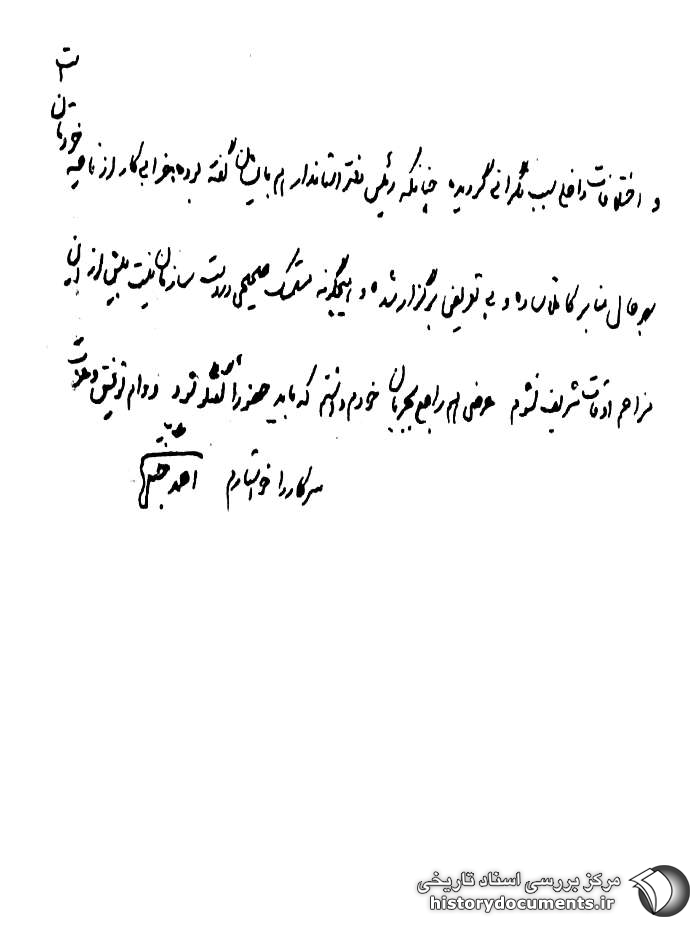 و اختلافات داخلی سبب نگرانی گردیده چنانکه رئیس دفتر استاندار هم با ایشان گفته بوده خرابی کار از ناحیه خودتان است
بهر حال منابر کاملا ساده و بی تعریفی برگزار شده و هیچگونه مستمسک صحیحی در دست سازمان نیست بیش از این
مزاحم اوقات شریف نشوم عرضی هم راجع بجریان خودم داشتم که باید حضورا گفتگو شود دوام توفیق و عزت
سرکار را خواستارم احمد
مرکز بررسی اسناد تاریخی
historydocuments.ir